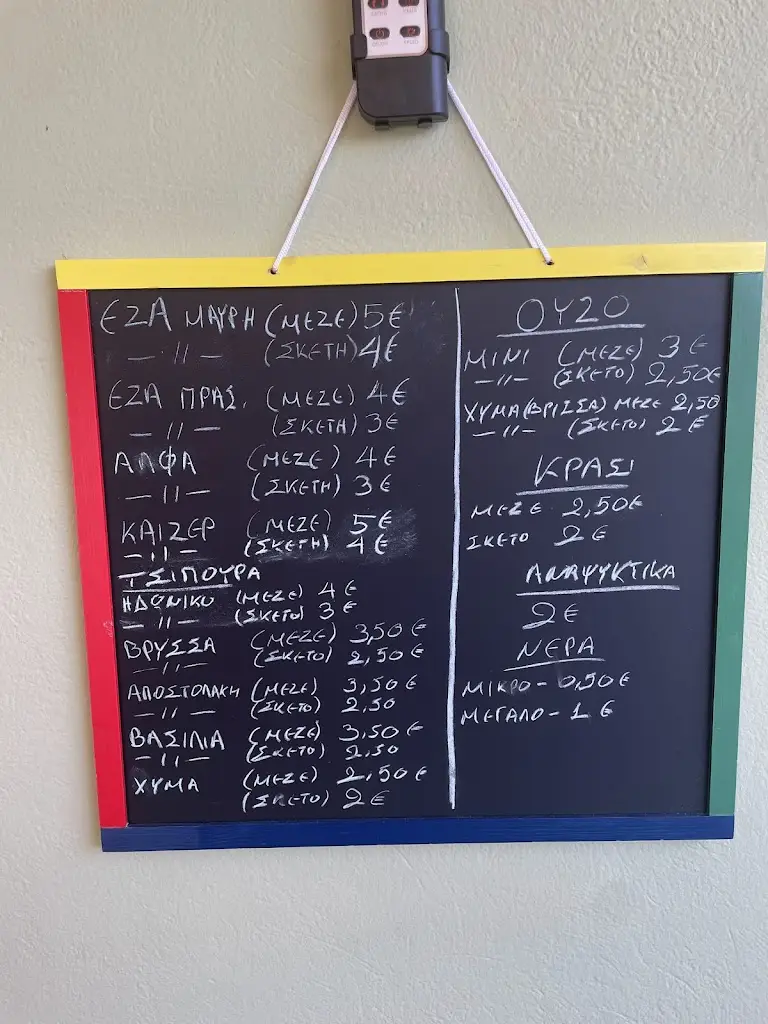 ΕΖΑ ΜΑΥΡΗ (ΜΕΖΕ) 5€
— 〃 — (ΣΚΕΤΗ) 4€
ΕΖΑ ΠΡΑΣ. (ΜΕΖΕ) 4€
— 〃 — (ΣΚΕΤΗ) 3€
ΑΛΦΑ (ΜΕΖΕ) 4€
— 〃 — (ΣΚΕΤΗ) 3€
ΚΑΙΖΕΡ (ΜΕΖΕ) 5€
— 〃 — (ΣΚΕΤΗ) 4€
ΤΣΙΠΟΥΡΑ
ΗΔΩΝΙΚΟ (ΜΕΖΕ) 4€
— 〃 — (ΣΚΕΤΟ) 3€
ΒΡΥΣΣΑ (ΜΕΖΕ) 3,50€
— 〃 — (ΣΚΕΤΟ) 2,50€
ΑΠΟΣΤΟΛΑΚΗ (ΜΕΖΕ) 3,50€
— 〃 — (ΣΚΕΤΟ) 2,50
ΒΑΣΙΛΙΑ (ΜΕΖΕ) 3,50€
— 〃 — (ΣΚΕΤΟ) 2,50
ΧΥΜΑ (ΜΕΖΕ) 2,50€
(ΣΚΕΤΟ) 2€
ΟΥΖΟ
ΜΙΝΙ (ΜΕΖΕ) 3€
— 〃 — (ΣΚΕΤΟ) 2,50€
ΧΥΜΑ (ΒΡΙΣΣΑ) ΜΕΖΕ 2,50
— 〃 — (ΣΚΕΤΟ) 2€
ΚΡΑΣΙ
ΜΕΖΕ 2,50€
ΣΚΕΤΟ 2€
ΑΝΑΨΥΚΤΙΚΑ
2€
ΝΕΡΑ
ΜΙΚΡΟ - 0,50€
ΜΕΓΑΛΟ - 1€